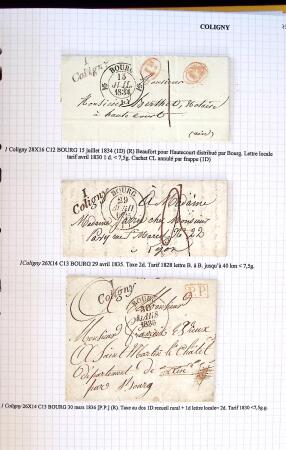 COLIGNY
1
Coligny
BOURG
15
JUIL
1834
Monsieur
Monsieur Berthet, Notaire
à haute court
(ain)
1 Coligny 28X16 C12 BOURG 15 juillet 1834 (1D) (R) Beaufort pour Hautecourt distribué par Bourg. Lettre locale
tarif avril 1830 1 d. < 7,5g. Cachet CL annulé par frappe (1D)
1
Coligny
BOURG
29
A Madame
chez Monsieur
22
Lyon
1Coligny 26X14 C13 BOURG 29 avril 1835. Taxe 2d. Tarif 1828 lettre B. à B. jusqu'à 40 km < 7,5g.
1
Coligny
BOURG
MARS
1836
P.P.
A Monsieur
Monsieur
A Saint Martin le Châtel
département de
par Bourg
1 Coligny 26X14 C13 BOURG 30 mars 1836 [P.P.] (R). Taxe au dos 1D recueil rural + 1d lettre locale= 2d. Tarif 1830 <7,5g.